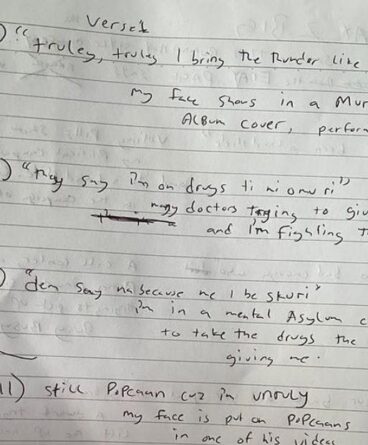 Verse 1
) "truley, truley I bring the thunder like
my face shows in a Mur
Album cover, perfor
) "they say i'm on drugs ti
many doctors trying to giv
and I'm fighting t
) "dem say na because me I be skuri"
i'm in a mental Asylum c
to take the drugs the
giving me.
11) still Popcaan cuz im unruly
my face is put on Popcaans
in one of his videos